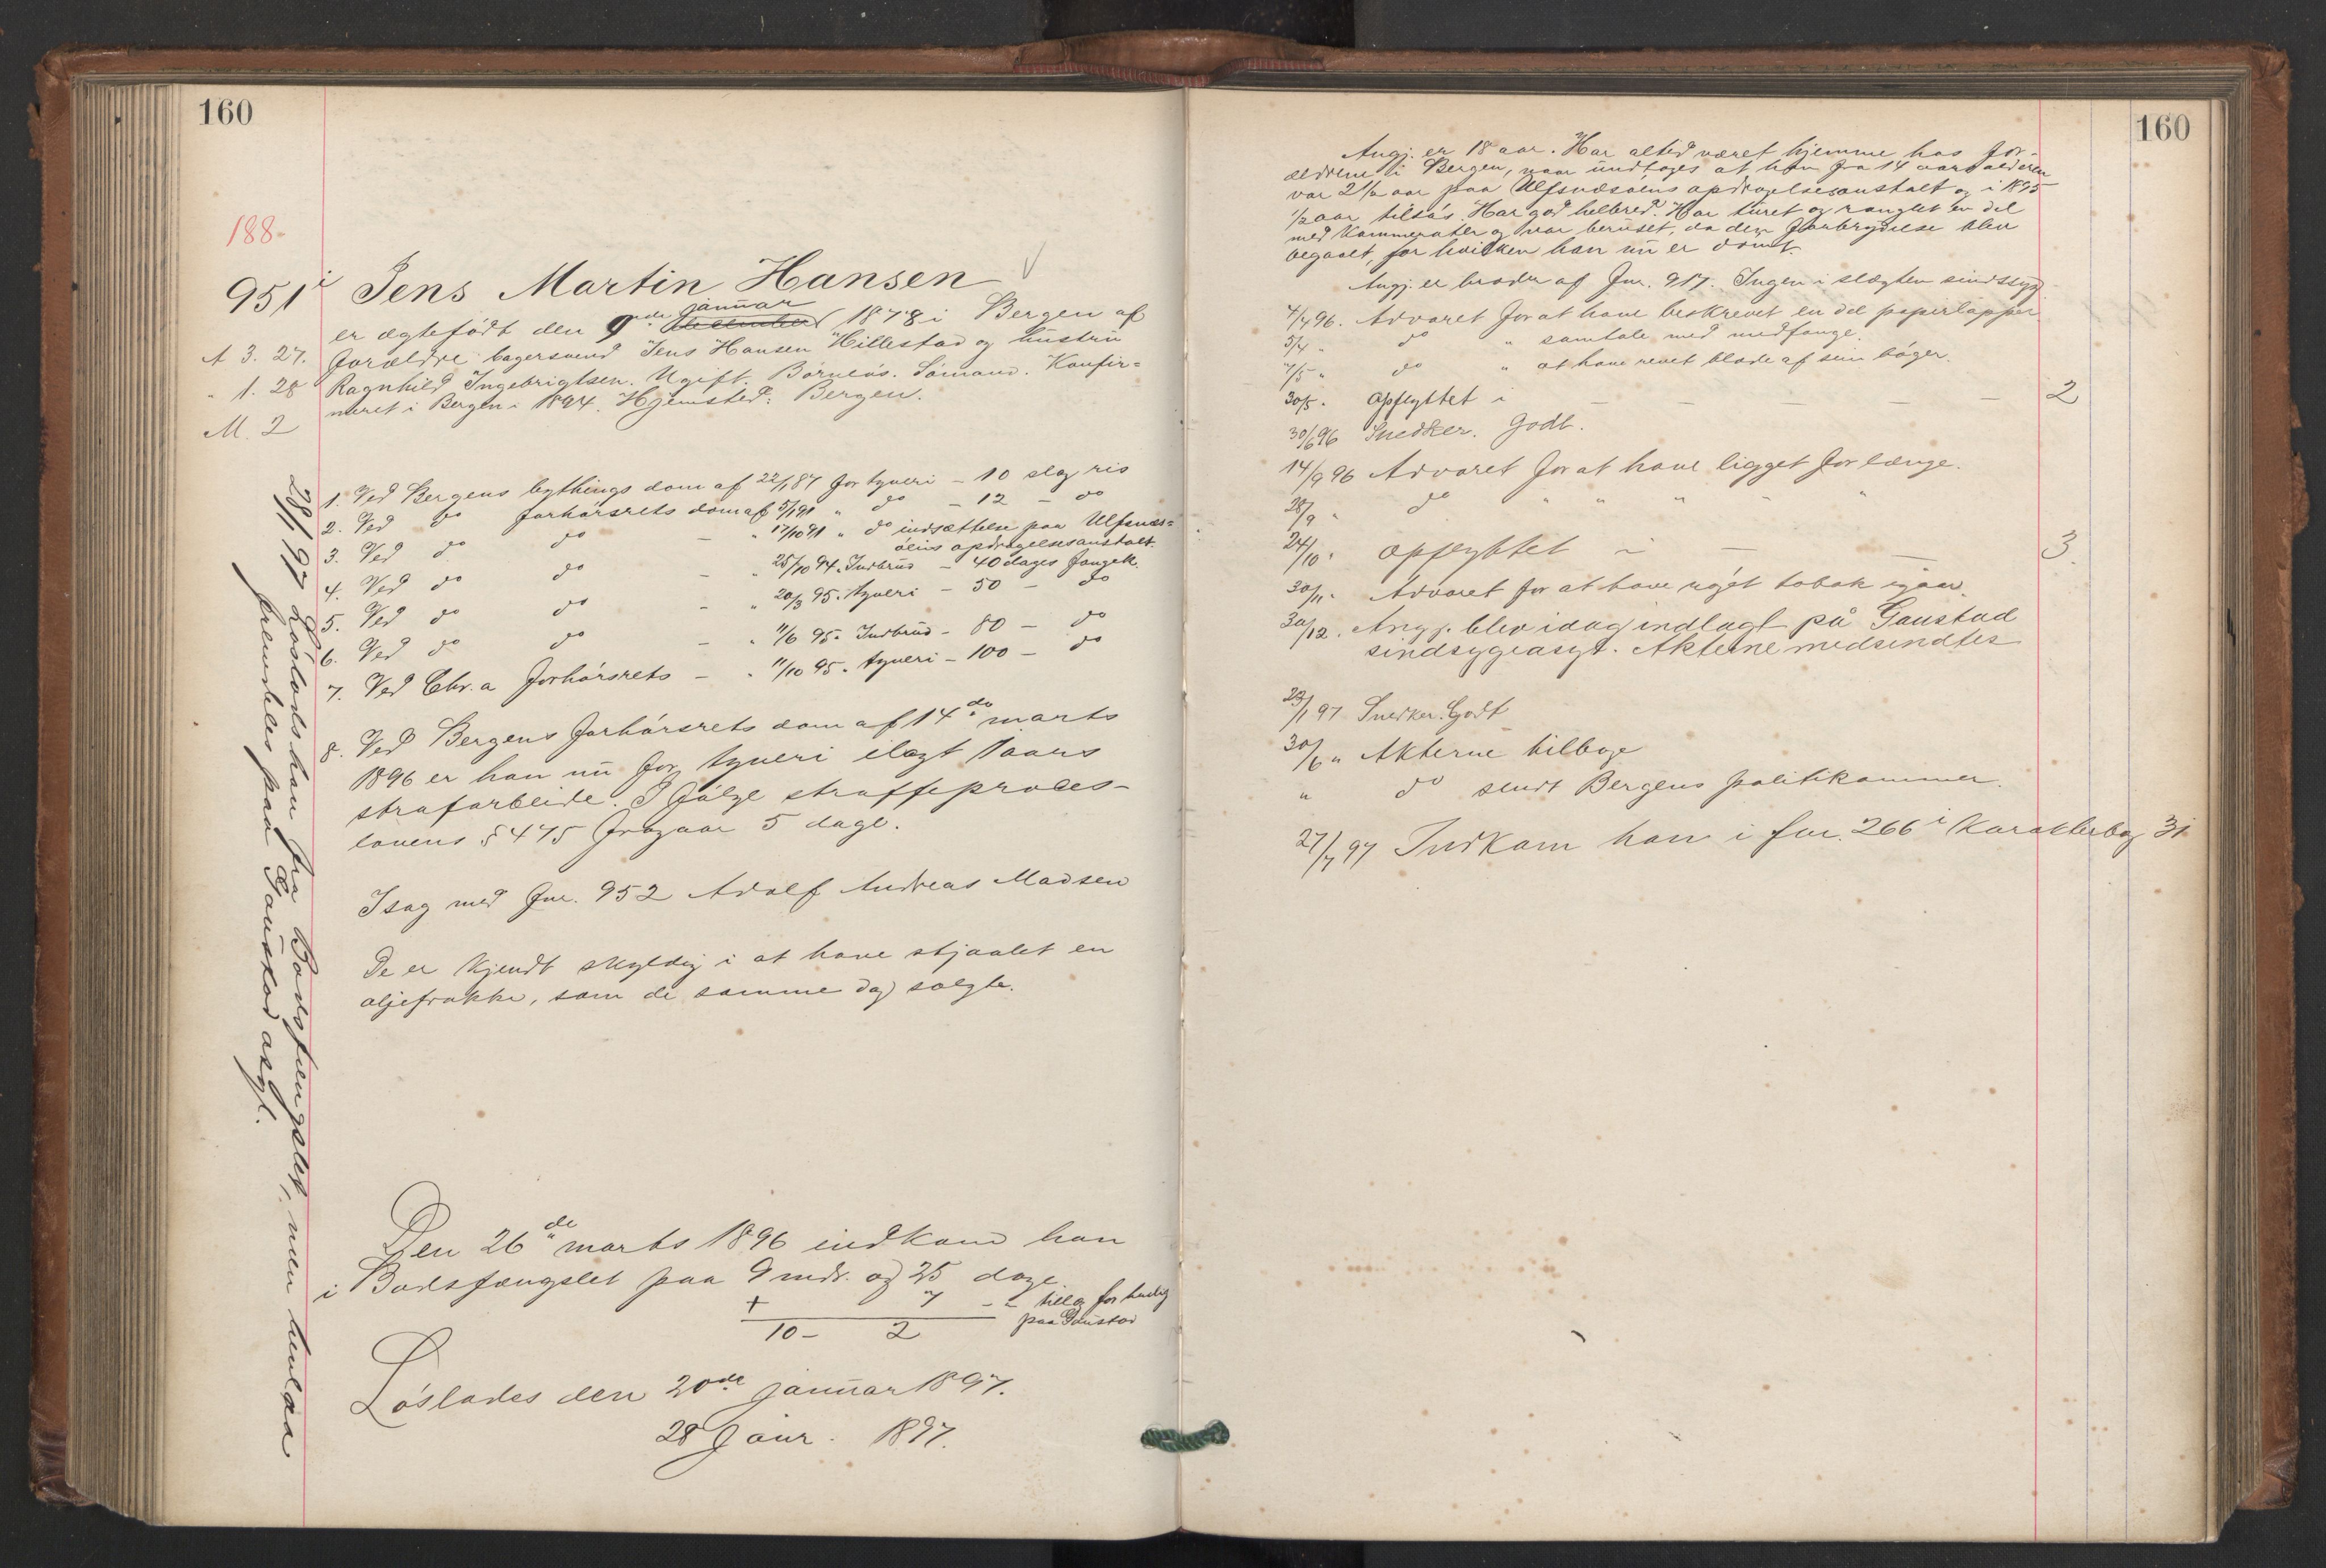 160
188
951 i Jens Martin Hansen
januar
er ægtefödt den 9de december 1878 i Bergen af
A 3. 27. forældre bagersvend Jens Hansen Hillestad og hustru
" 1. 28 Ragnhild Ingebrigtsen. Ugift. Barnlös. Sömand. Konfir=
M. 2 meret i Bergen i 1894. Hjemsted: Bergen.
1. Ved Bergens bythings dom af 22/1 87 for tyveri – 10 slag ris
2. Ved do forhörsrets dom af 5/1 91 " do – 12 – do
3. Ved do do – " 17/10 91 " do indsættelse paa Ulfsnæs=
öens opdragelsesanstalt.
4. Ved do do – " 25/10 94 " Indbrud – 40 dages fængsl.
5. Ved do do – " 20/3 95 " tyveri – 50 – do
6. Ved do do – " 11/6 95 " Indbrud – 80 – do
7. Ved Chr.a forhörsrets – " 11/10 95 " tyveri – 100 – do
8. Ved Bergens forhörsrets dom af 14de marts
1896 er han nu for tyveri ilagt 1 aars
strafarbeide. I følge straffeproces-
lovens § 475 fragaar 5 dage.
I sag med fnr. 952 Adolf Andreas Madsen
De er kjendt skyldig i at have stjaalet en
oljefrakke, som de samme dag solgte.
Den 26de marts 1896 indkom han
i Bodsfængslet paa 9 mdr. og 25 dage
+ 7 – " tillæg for hver dag
10 – 2 paa Gaustad
Löslades den 20de januar 1897.
28 Januar 1897.
28/1 97 Löslods han fra Bodsfængslet, men henlaa
fremdeles paa Gaustad asyl.
160
Angj. er 18 aar. Har altid været hjemme hos for-
ældrene i Bergen, naar undtages at han fra 14 aars alderen
var 2 1/2 aar paa Ulfsnæsöens opdragelsesanstalt og i 1895
1/2 aar tilsös. Har god helbred. Har turet og ranglet en del
med kammerater og var beruset, da den forbrydelse blev
begaaet, for hvilken han nu er dömt.
Angj. er broder af fnr. 917. Ingen i slægten sindssyg.
4/4 96. Advaret for at have beskrevet en del papirlapper
5/4 " do " samtale med medfange.
7/5 " do " at have revet blade af sine böger.
30/5 " Opflyttet i – – – – – 2
30/6 96 Snedker. Godt.
14/9 96 Advaret for at have ligget for længe.
28/9 " do " " " " "
24/10 " Opflyttet i – – 3.
30/11 " Advaret for at have rögt tobak igaar.
30/12. Angj. blev idag indlagt på Gaustad
sindsygeasyl. Akterne medsendtes
23/1 97 Snedker. Godt
30/6 " Akterne tilbage
" do sendt Bergens politikammer.
27/7 97 Indkom han i fnr. 266 i Karakterbog 31